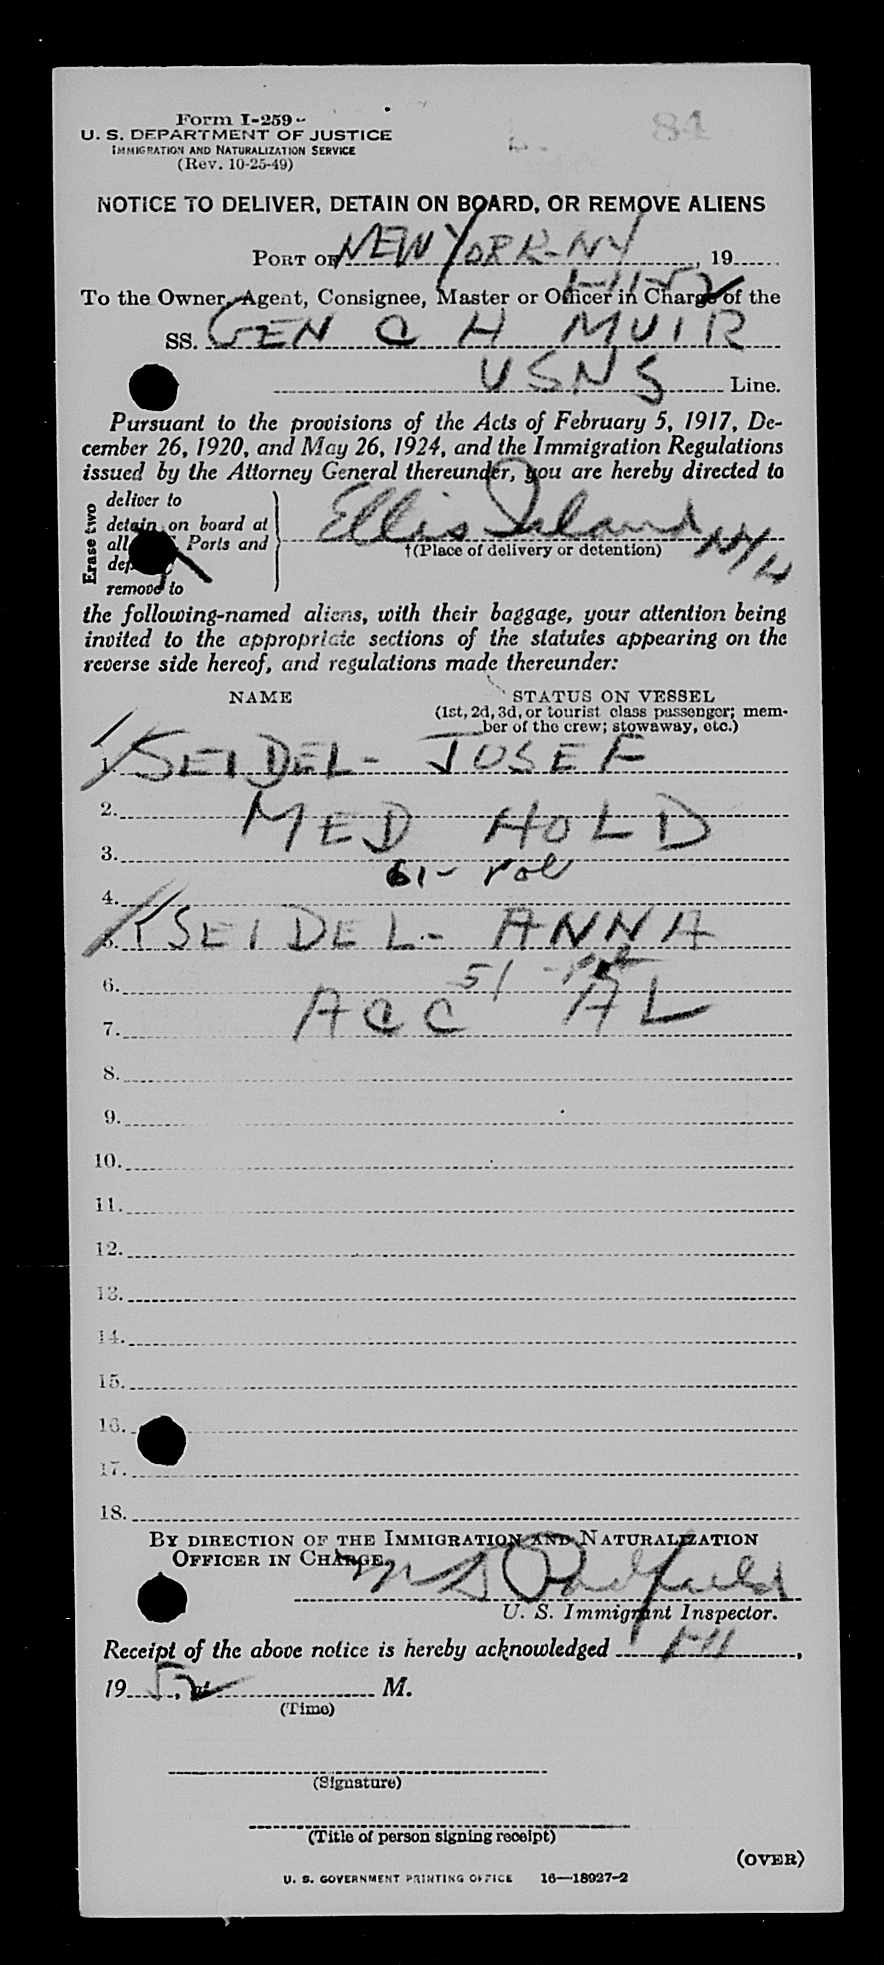 84
Form I-259
U. S. DEPARTMENT OF JUSTICE
IMMIGRATION AND NATURALIZATION SERVICE
(Rev. 10-25-49)
NOTICE TO DELIVER, DETAIN ON BOARD, OR REMOVE ALIENS
PORT OF NEW YORK-NY, 19
1-11-52
To the Owner, Agent, Consignee, Master or Officer in Charge of the
SS. GEN C H MUIR
USNS Line.
Pursuant to the provisions of the Acts of February 5, 1917, De-
cember 26, 1920, and May 26, 1924, and the Immigration Regulations
issued by the Attorney General thereunder, you are hereby directed to
Erase two
deliver to
detain on board at
all Ports and
remove to
Ellis Island NYH
†(Place of delivery or detention)
the following-named aliens, with their baggage, your attention being
invited to the appropriate sections of the statutes appearing on the
reverse side hereof, and regulations made thereunder:
NAME STATUS ON VESSEL
(1st, 2d, 3d, or tourist class passenger; mem-
ber of the crew; stowaway, etc.)
1. SEIDEL - JOSEF
2. MED HOLD
3.
61 - Pol
4.
5. SEIDEL - ANNA
51 - Pol
6.
ACC AL
7.
8.
9.
10.
11.
12.
13.
14.
15.
16.
17.
18.
BY DIRECTION OF THE IMMIGRATION AND NATURALIZATION
OFFICER IN CHARGE.
U. S. Immigrant Inspector.
Receipt of the above notice is hereby acknowledged 1-11,
1952, at M.
(Time)
(Signature)
(Title of person signing receipt)
(OVER)
U. S. GOVERNMENT PRINTING OFFICE 16—18927-2